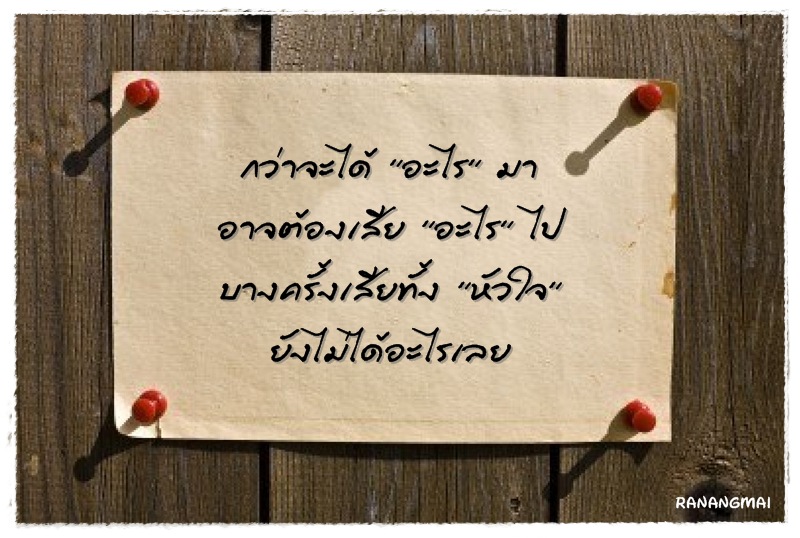 กว่าจะได้ "อะไร" มา
อาจต้องเสีย "อะไร" ไป
บางครั้งเสียทั้ง "หัวใจ"
ยังไม่ได้อะไรเลย
RANANGMAI